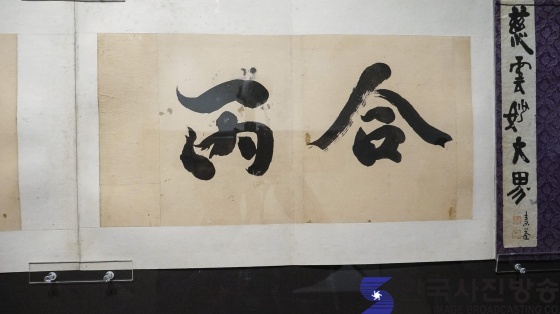 慈雲妙大界
合兩
국사진방송